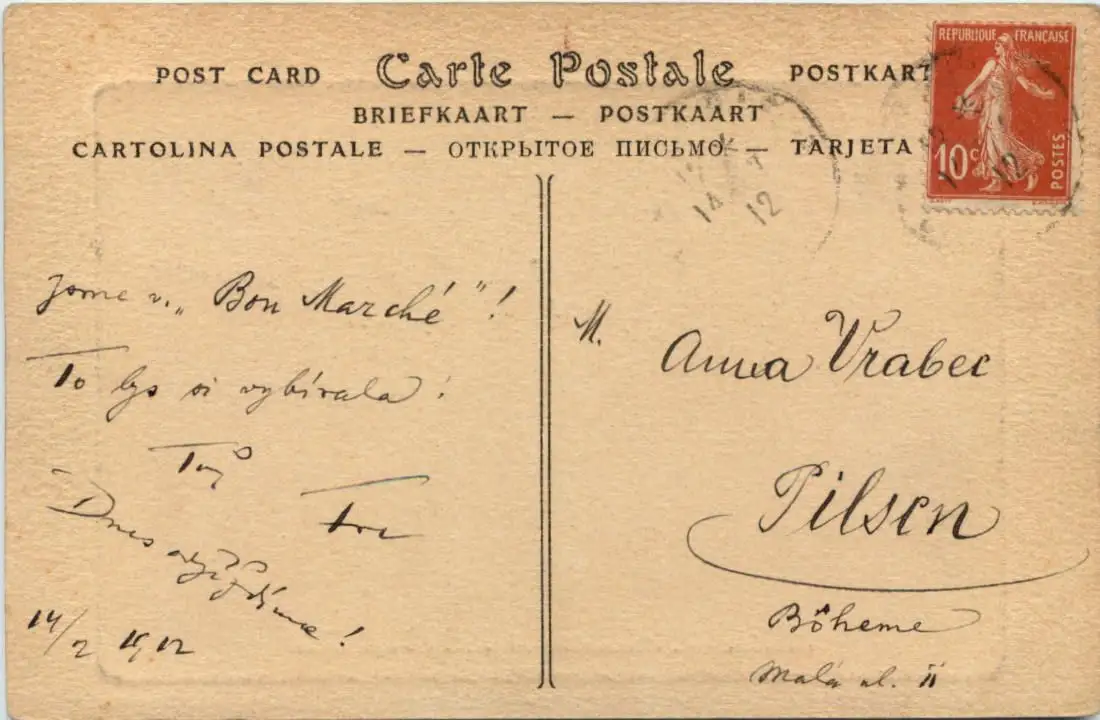 POST CARD Carte Postale POSTKART
BRIEFKAART — POSTKAART
CARTOLINA POSTALE — ОТКРЫТОЕ ПИСЬМО — TARJETA
REPUBLIQUE FRANÇAISE
10c
POSTES
14
12
12
Jsme v „Bon Marché“!
To bys si vybírala!
Tvůj
Dnes odjíždíme!
14/2 1912
M.
Anna Vrabec
Pilsen
Bôheme
Malá ul. ii